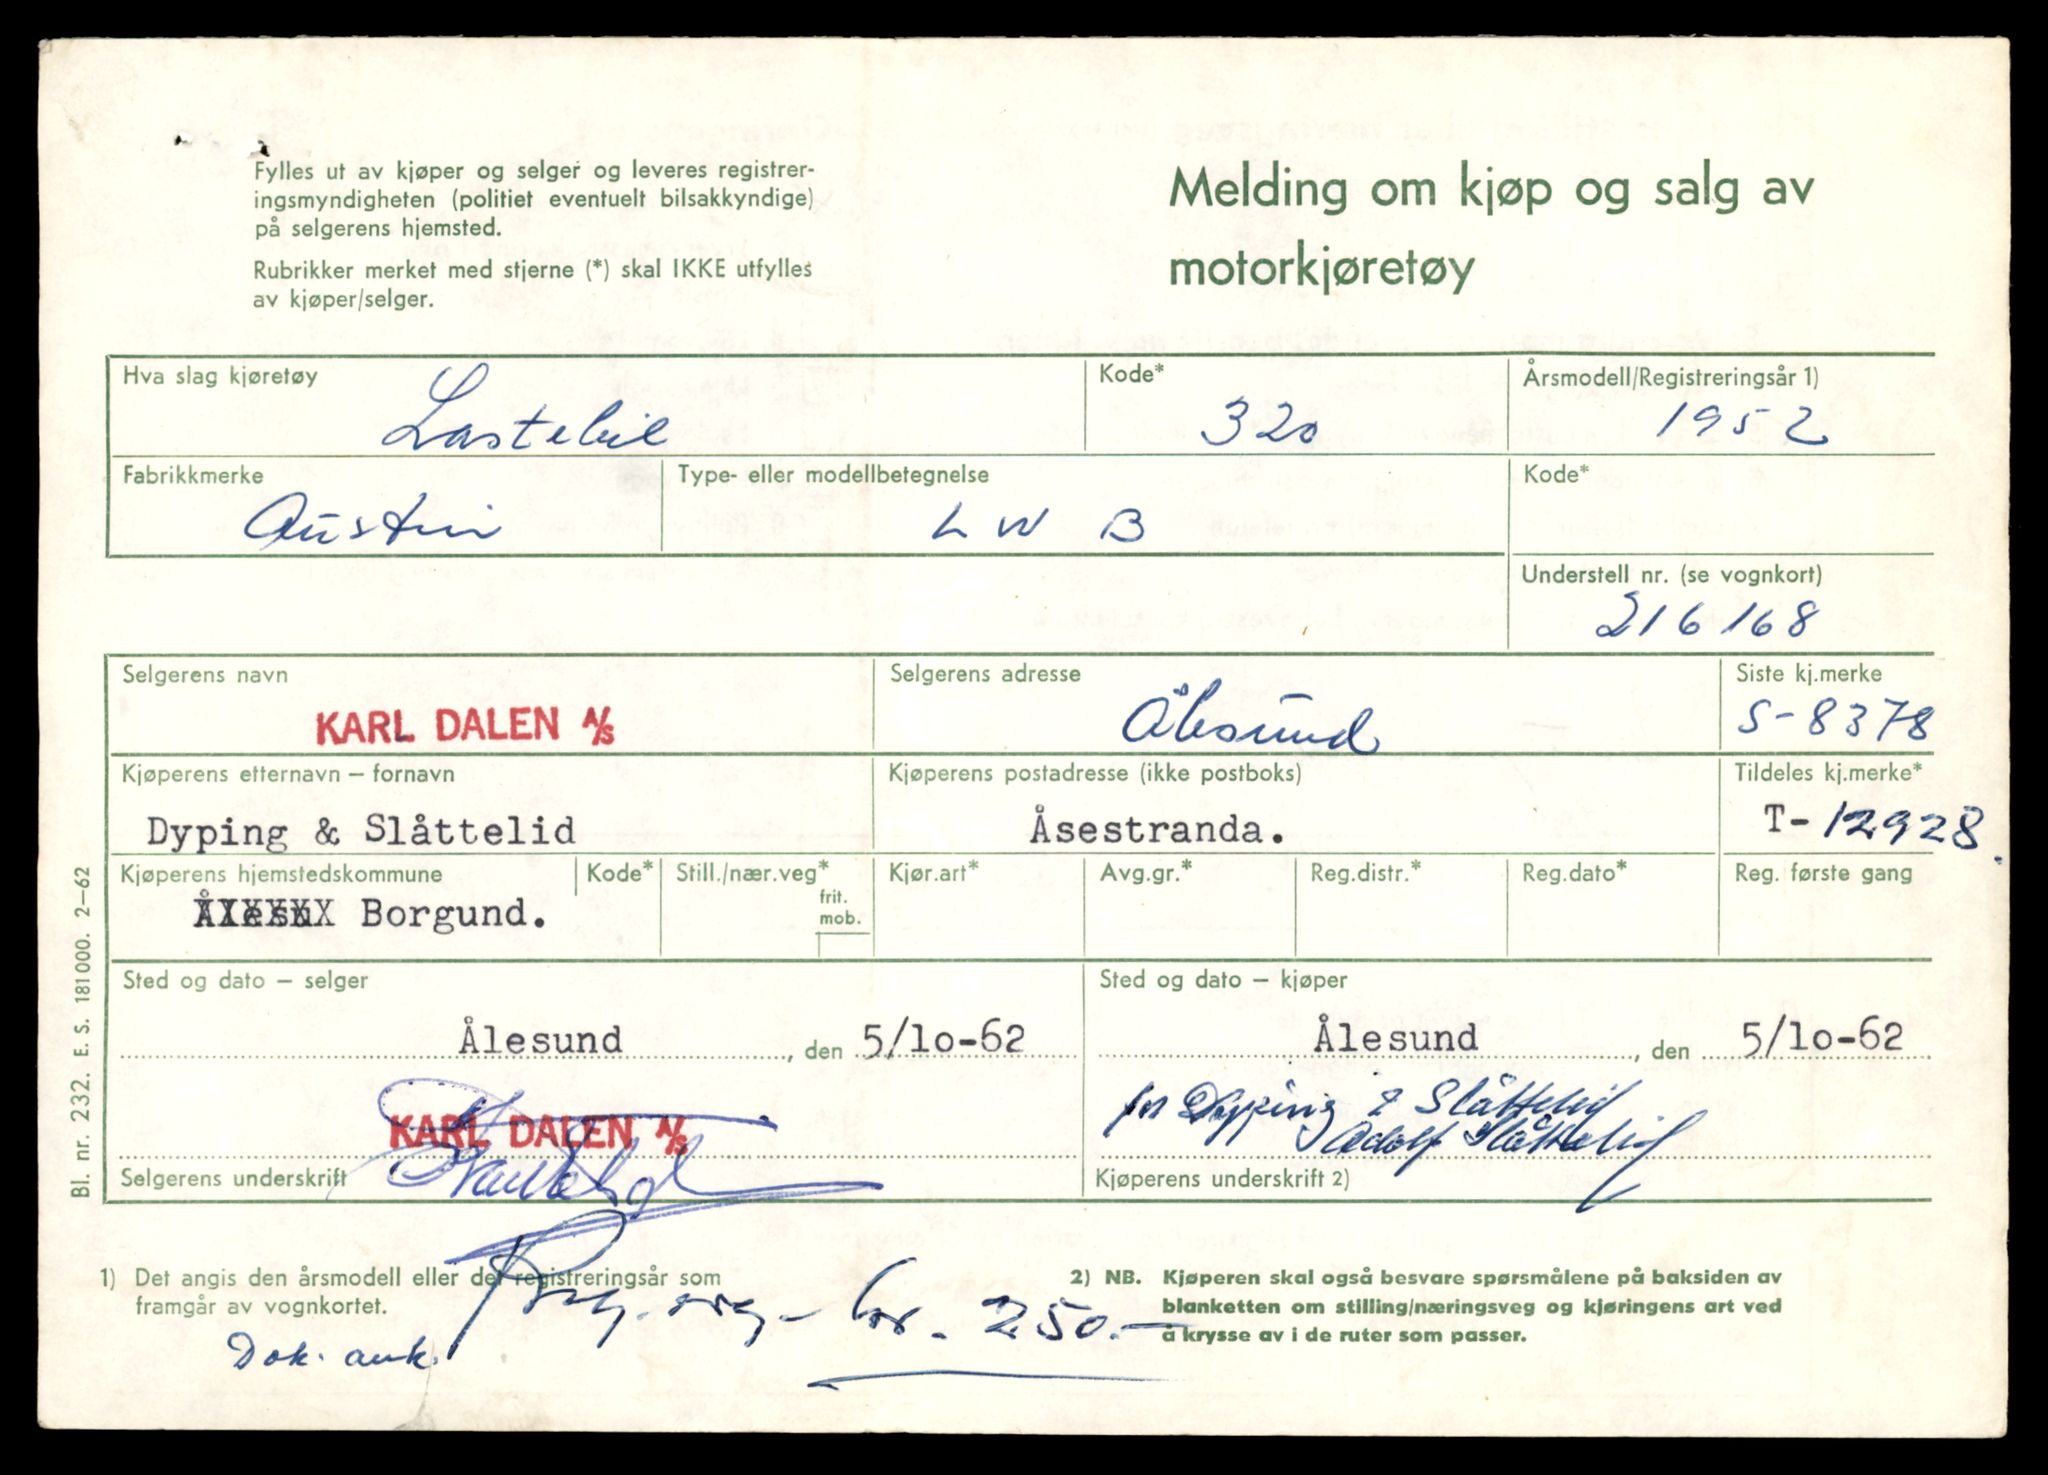 Fylles ut av kjøper og selger og leveres registrer-
ingsmyndigheten (politiet eventuelt bilsakkyndige)
på selgerens hjemsted.
Rubrikker merket med stjerne (*) skal IKKE utfylles
av kjøper/selger.
Melding om kjøp og salg av
motorkjøretøy
Hva slag kjøretøy
Lastebil
Kode*
320
Årsmodell/Registreringsår 1)
1952
Fabrikkmerke
Austin
Type- eller modellbetegnelse
L W B
Kode*
Understell nr. (se vognkort)
216168
Selgerens navn
KARL DALEN A/S
Selgerens adresse
Ålesund
Siste kj.merke
S-8378
Kjøperens etternavn – fornavn
Dyping & Slåttelid
Kjøperens postadresse (ikke postboks)
Åsestranda.
Tildeles kj.merke*
T-12928.
Kjøperens hjemstedskommune
Borgund.
Kode*
Still./nær.veg*
frit.
mob.
Kjør.art*
Avg.gr.*
Reg.distr.*
Reg.dato*
Reg. første gang
Sted og dato – selger
Ålesund, den 5/1o-62
Sted og dato – kjøper
Ålesund, den 5/1o-62
KARL DALEN A/S
Selgerens underskrift
for Dypping & Slåttelid
Adolf Slåttelid
Kjøperens underskrift 2)
1) Det angis den årsmodell eller det registreringsår som
framgår av vognkortet.
Dok. ank.
kr. 250.-
2) NB. Kjøperen skal også besvare spørsmålene på baksiden av
blanketten om stilling/næringsveg og kjøringens art ved
å krysse av i de ruter som passer.
Bl. nr. 232. E. S. 181000. 2–62